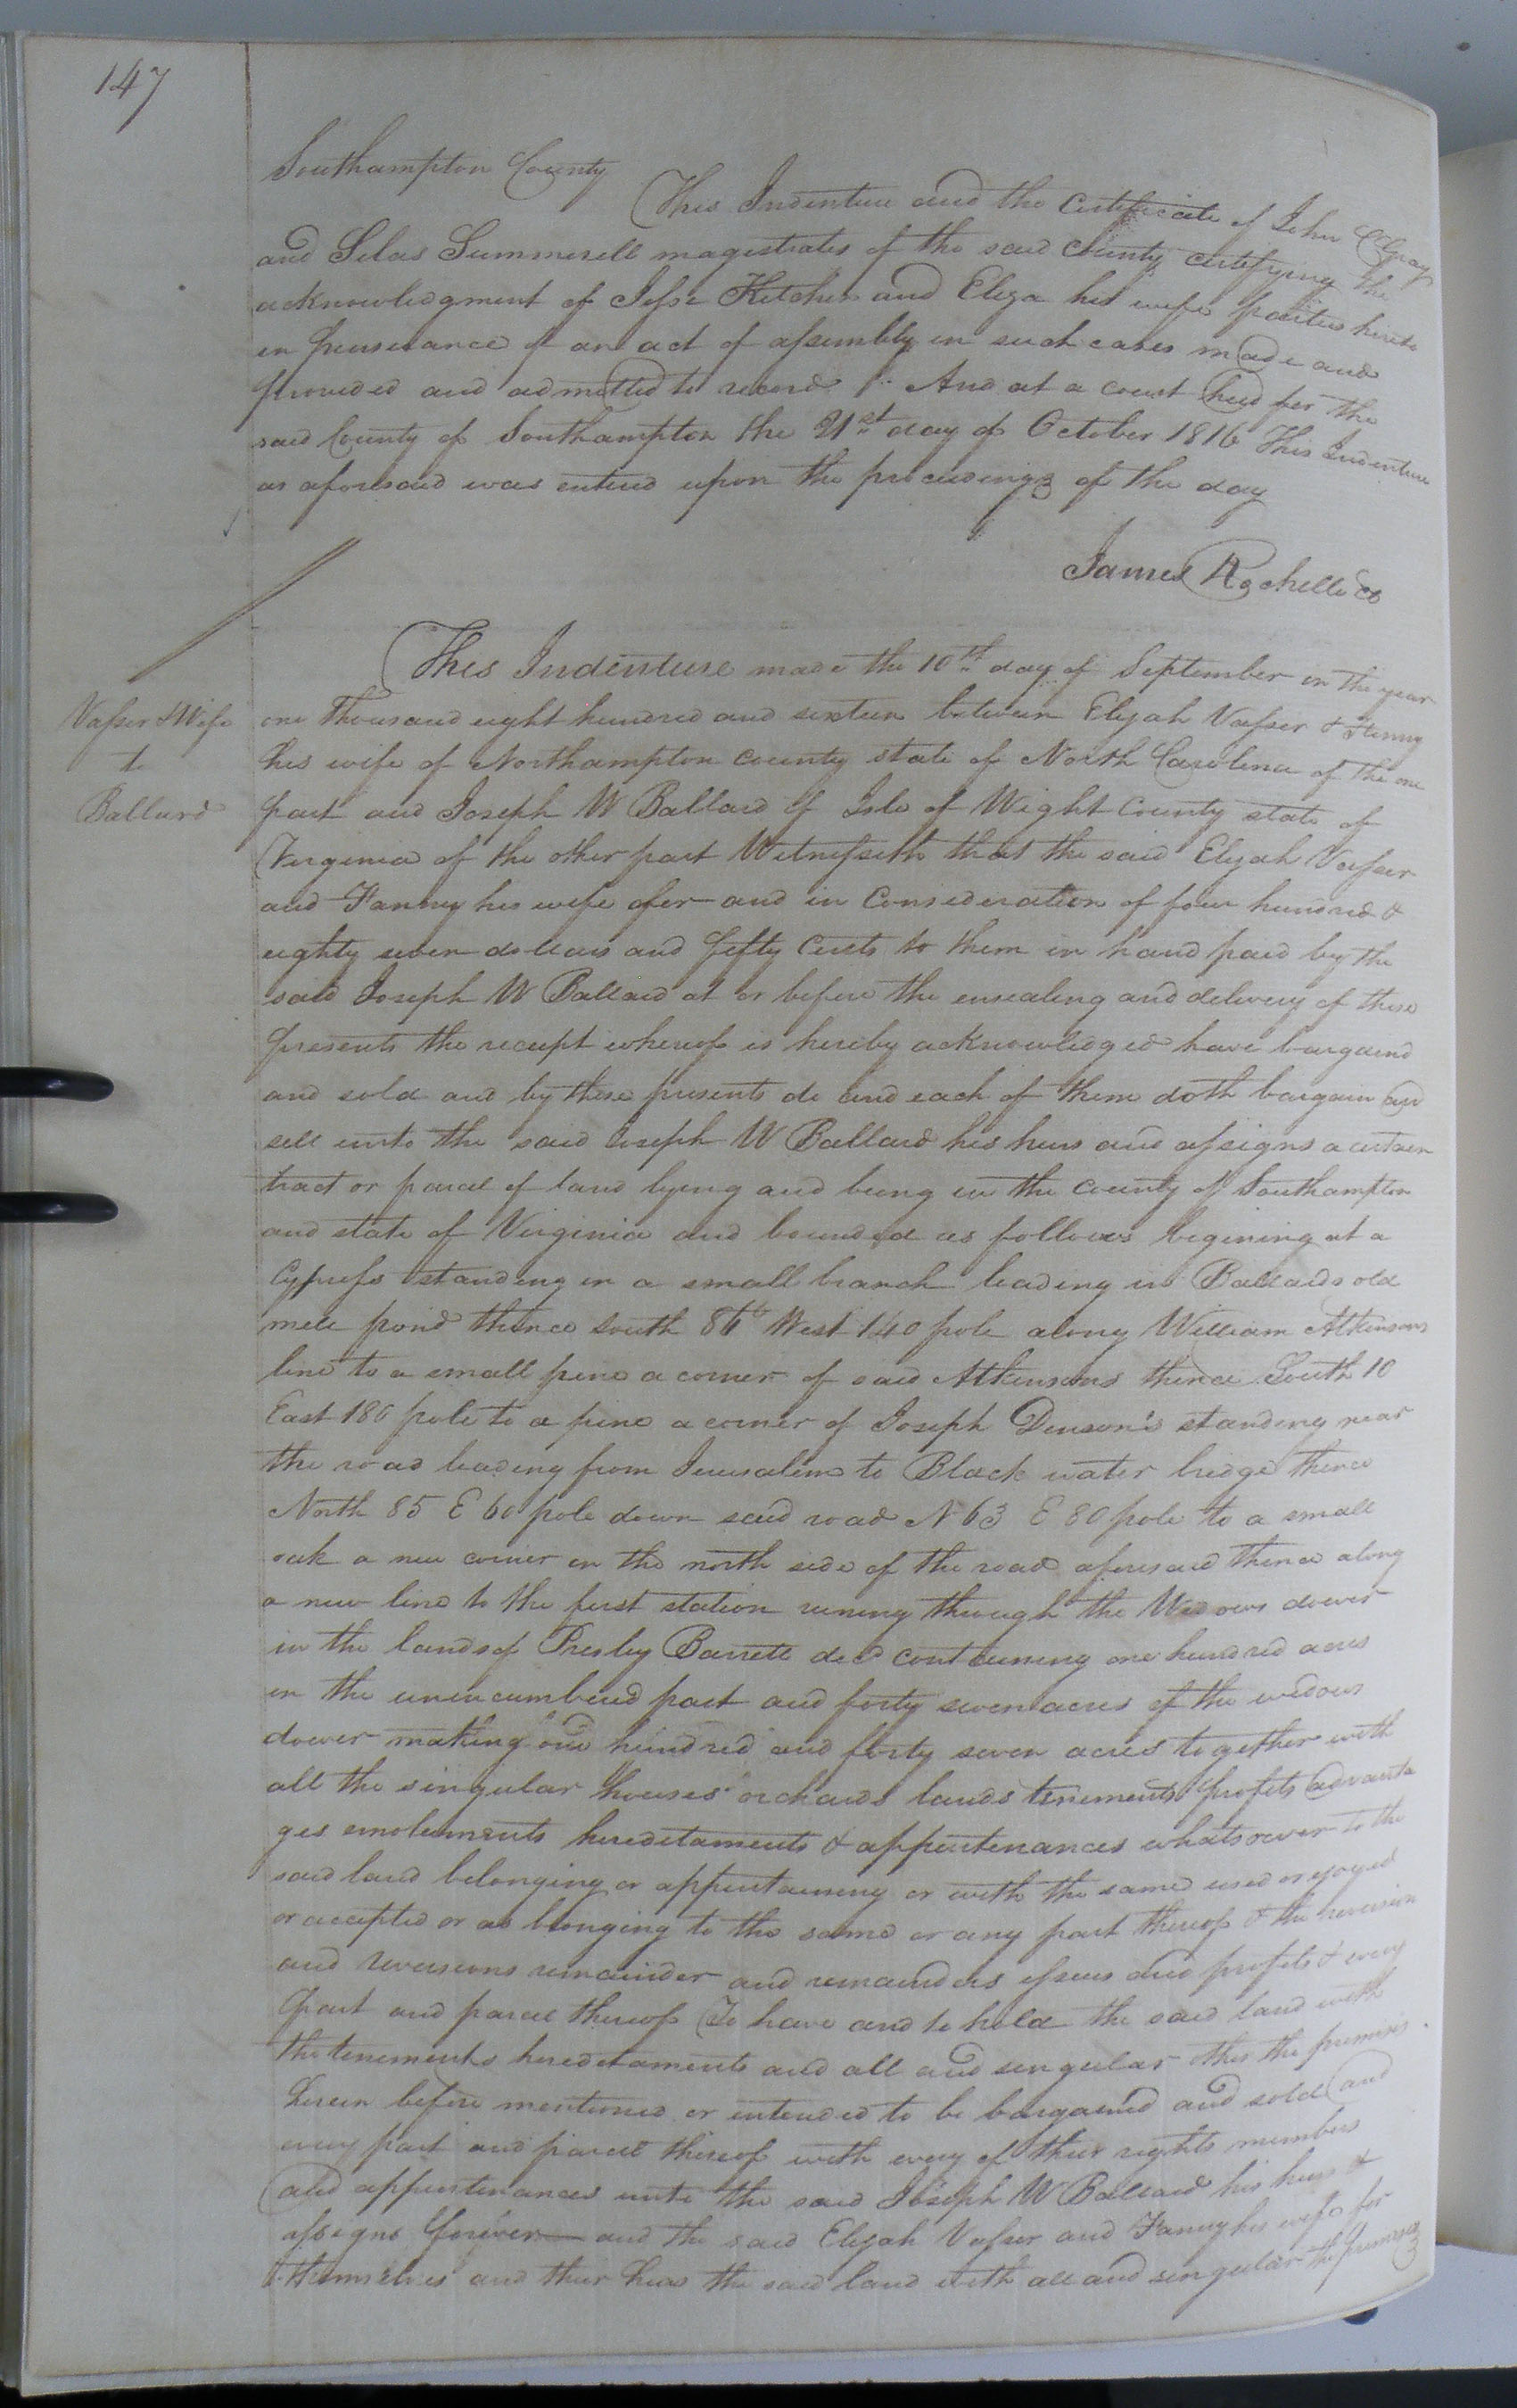 147
Southampton County
This Indenture and the Certificate of John C Gray
and Silas Summerell magestrates of the said County certifying the
acknowledgment of Jesse Kitchen and Eliza his wife parties hereto
in pursuance of an act of assembly in such cases made and
provided and admitted to record And at a court held for the
said County of Southampton the 21st day of October 1816 This Indenture
as aforesaid was entered upon the proceedings of the day
James Rochelle
This Indenture made the 10th day of September in the year
Vasser & Wife
to
Ballard
one thousand eight hundred and sixteen between Elijah Vasser &
his wife of Northampton county state of North Carolina of the one
part and Joseph W Ballard of Isle of Wight County state of
Virginia of the other part Witnesseth that the said Elijah Vasser
and Fanny his wife for and in Consideration of four hundred &
eighty seven dollars and fifty Cents to them in hand paid by the
said Joseph W Ballard at or before the ensealing and delivery of these
presents the receipt whereof is hereby acknowledged have bargaind
and sold and by these presents do and each of them doth bargain and
sell unto the said Joseph W Ballard his heirs and assigns a certain
tract or parcel of land lying and being in the county of Southampton
and state of Virginia and bounded as follows begining at a
Cypress standing in a small branch leading in Ballards old
mill pond thence South 86 West 140 pole along William Atkinsons
line to a small pine a corner of said Atkinsons thence South 10
East 186 pole to a pine a corner of Joseph Denson's standing near
the road leading from Jerusalem to Black water bridge thence
North 85 E 60 pole down said road N 63 E 80 pole to a small
oak a new corner on the north side of the road aforesaid thence along
a new line to the first station runing through the Widows dower
in the lands of Presley Barrett decd containing one hundred acres
in the unincumbered part and forty seven acres of the widows
dower making one hundred and forty seven acres together with
all the singular houses orchards lands tenements profits advanta
ges emoluments hereditaments & appurtenances whatsoever to the
said land belonging or appertaining or with the same used or ejoyed
or accepted or as blonging to the same or any part thereof & the reversion
and reversions remainder and remainders issues and profits & every
part and parcel thereof To have and to hold the said land with
the tenements hereditaments and all and singular other the premises
herein before mentioned or intended to be bargained and sold and
every part and parcel thereof with every of their rights members
and appurtenances unto the said Joseph W Ballard his heirs &
assigns forever and the said Elijah Vasser and Fanny his wife for
themselves and their heirs the said land with all and singular the premises